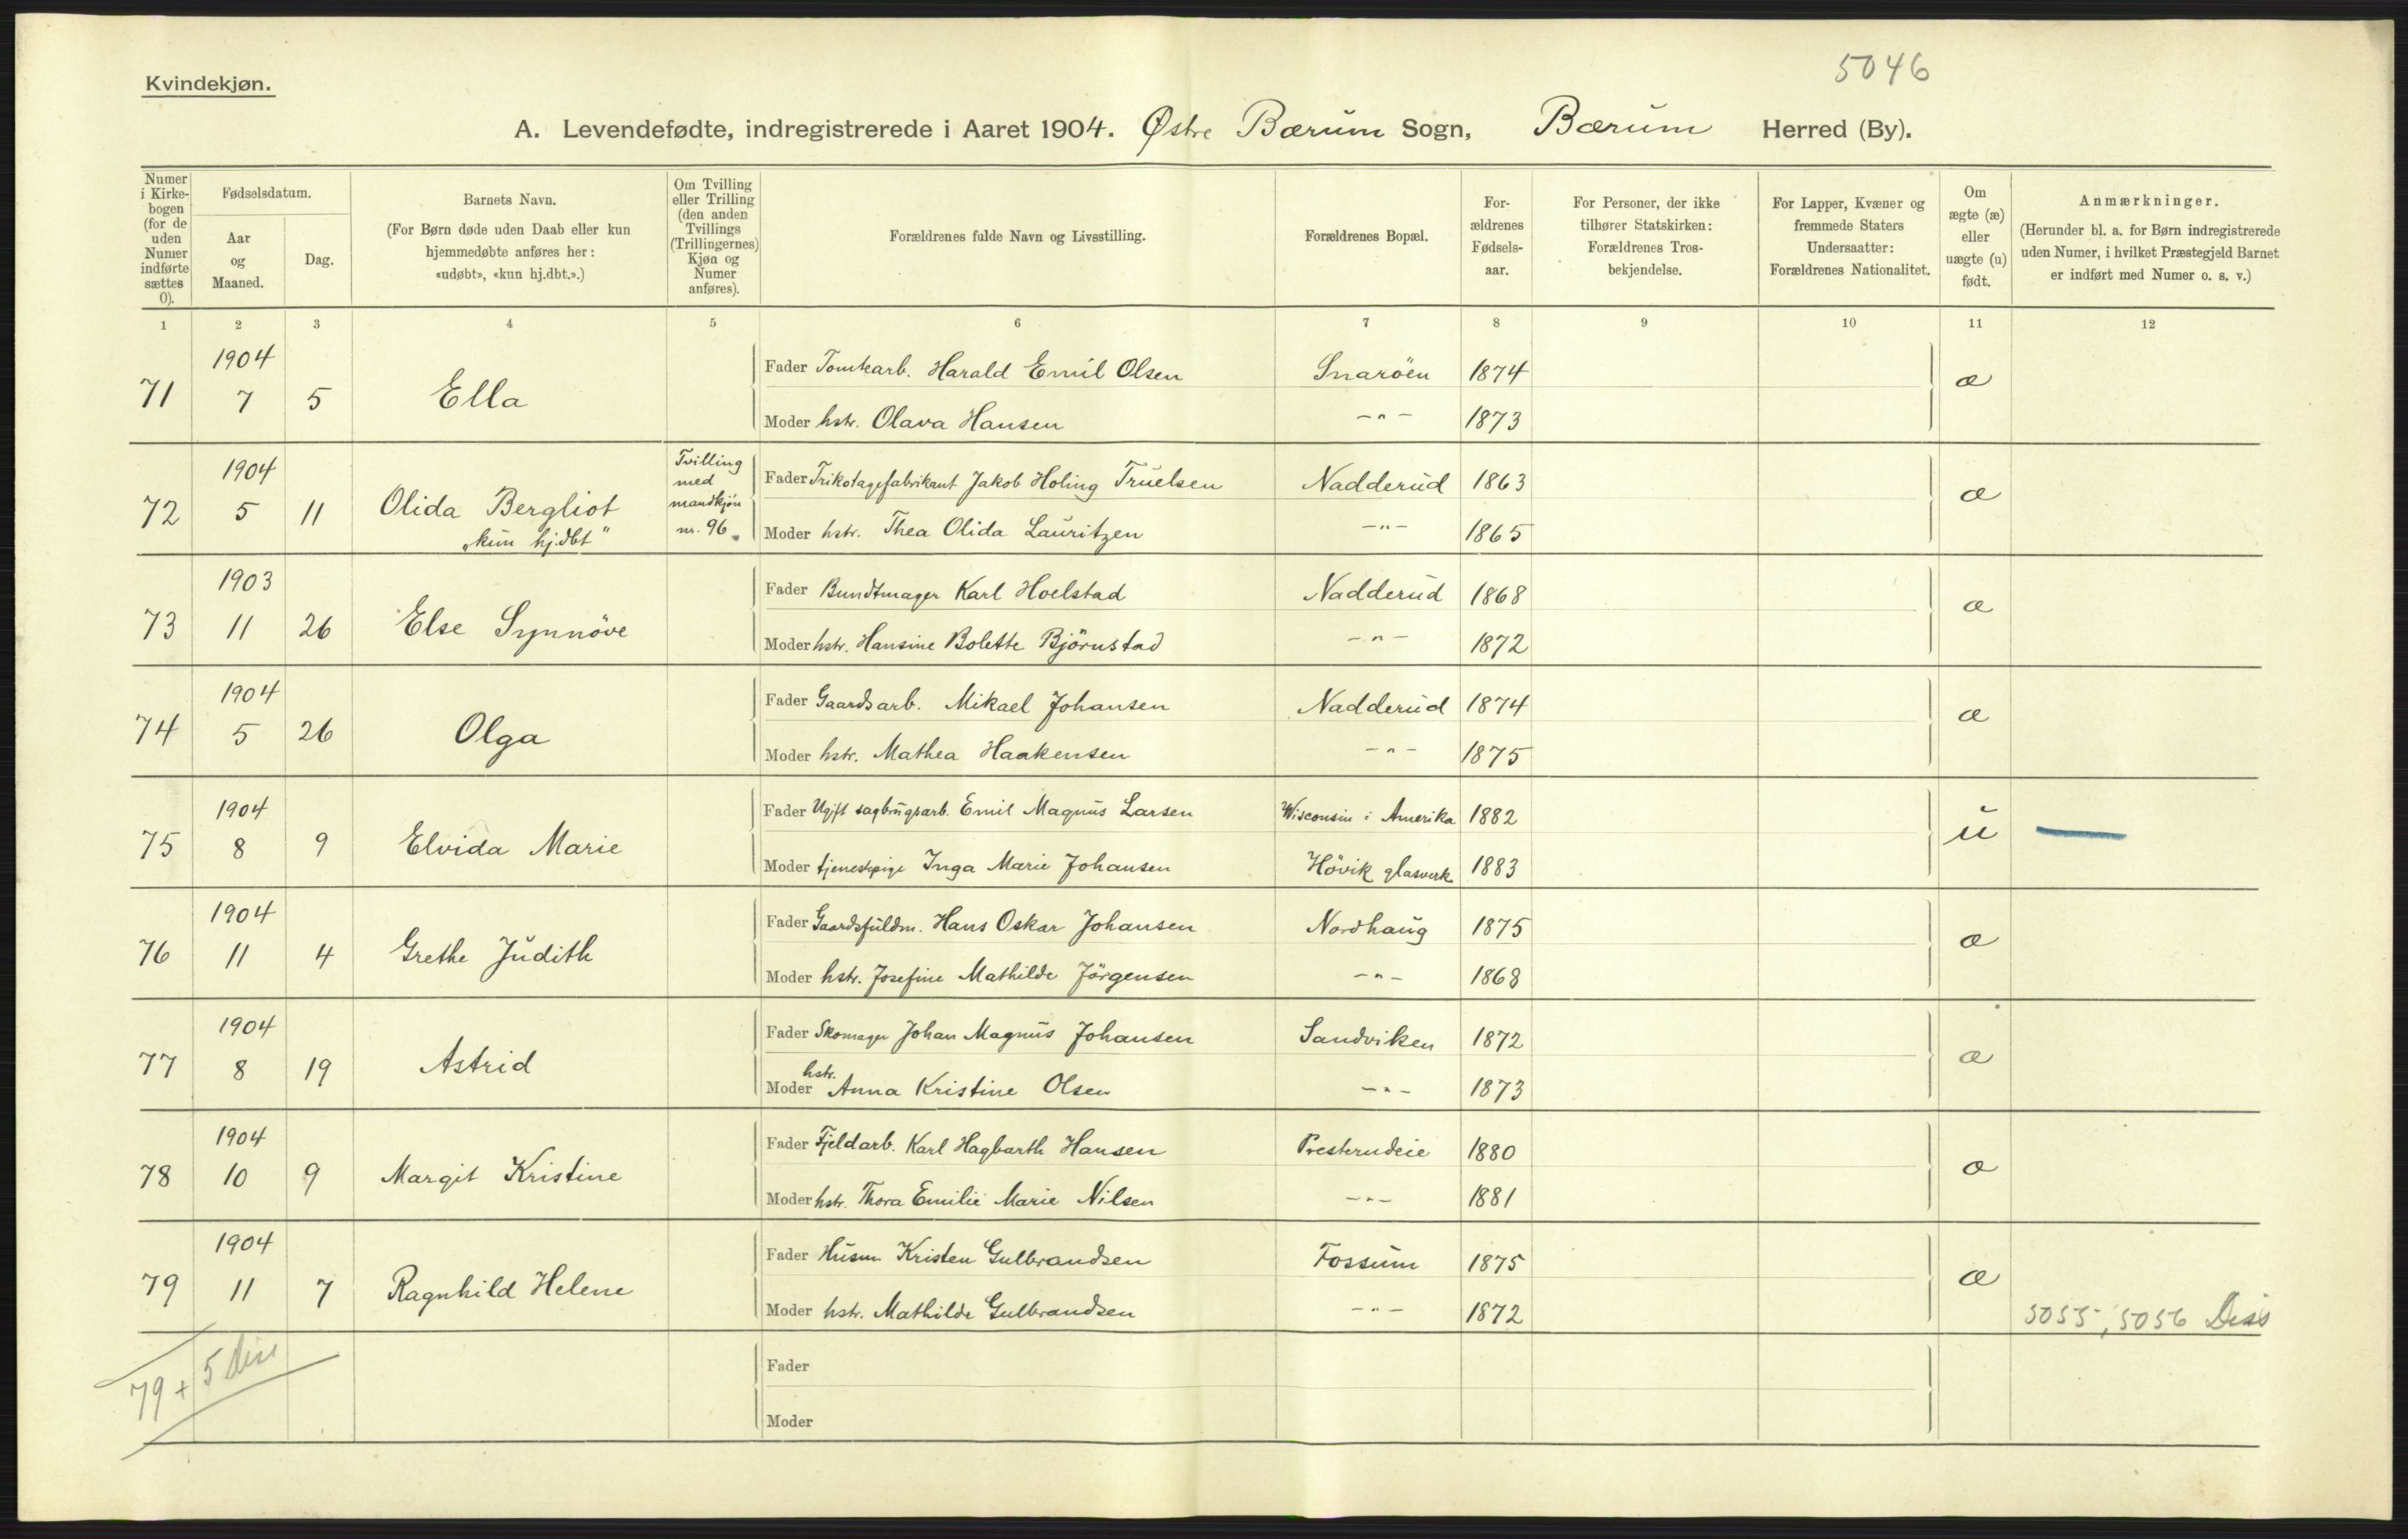 5046
Kvindekjøn.
A. Levendefødte, indregistrerede i Aaret 1904. Østre Bærum Sogn, Bærum Herred (By).
Numer i Kirkebogen (for de uden Numer indførte sættes 0).
Fødselsdatum.
Aar og Maaned.
Dag.
Barnets Navn.
(For Børn døde uden Daab eller kun hjemmedøbte anføres her: «udøbt», «kun hj.dbt.».)
Om Tvilling eller Trilling (den anden Tvillings (Trillingernes) Kjøn og Numer anføres).
Forældrenes fulde Navn og Livsstilling.
Forældrenes Bopæl.
Forældrenes Fødselsaar.
For Personer, der ikke tilhører Statskirken: Forældrenes Trosbekjendelse.
For Lapper, Kvæner og fremmede Staters Undersaatter: Forældrenes Nationalitet.
Om ægte (æ) eller uægte (u) født.
Anmærkninger.
(Herunder bl. a. for Børn indregistrerede uden Numer, i hvilket Præstegjeld Barnet er indført med Numer o. s. v.)
1 2 3 4 5 6 7 8 9 10 11 12
71 1904 7 5 Ella Fader Tomtearb. Harald Emil Olsen Snaröen 1874 æ
Moder hstr. Olava Hansen -"- 1873
72 1904 5 11 Olida Bergliot „kun hj.dbt" Tvilling med mandkjøn nr. 96. Fader Trikotagefabrikant Jakob Holing Truelsen Nadderud 1863 æ
Moder hstr. Thea Olida Lauritzen -"- 1865
73 1903 11 26 Else Synnöve Fader Bundtmager Karl Hoelstad Nadderud 1868 æ
Moder hstr. Hansine Bolette Björnstad -"- 1872
74 1904 5 26 Olga Fader Gaardsarb. Mikael Johansen Nadderud 1874 æ
Moder hstr. Mathea Haakensen -"- 1875
75 1904 8 9 Elvida Marie Fader Ugift sagbrugsarb. Emil Magnus Larsen Wisconsin i Amerika 1882 u
Moder tjenestepige Inga Marie Johansen Hövik glasverk 1883
76 1904 11 4 Grethe Judith Fader Gaardsfuldm. Hans Oskar Johansen Nordhaug 1875 æ
Moder hstr. Josefine Mathilde Jörgensen -"- 1868
77 1904 8 19 Astrid Fader Skomager Johan Magnus Johansen Sandviken 1872 æ
Moder hstr. Anna Kristine Olsen -"- 1873
78 1904 10 9 Margit Kristine Fader Fjeldarb. Karl Hagbarth Hansen Presterudeie 1880 æ
Moder hstr. Thora Emilie Marie Nilsen -"- 1881
79 1904 11 7 Ragnhild Helene Fader Husm. Kristen Gulbrandsen Fossum 1875 æ
Moder hstr. Mathilde Gulbrandsen -"- 1872
5055, 5056 Diss
79 + 5 diss
Fader
Moder